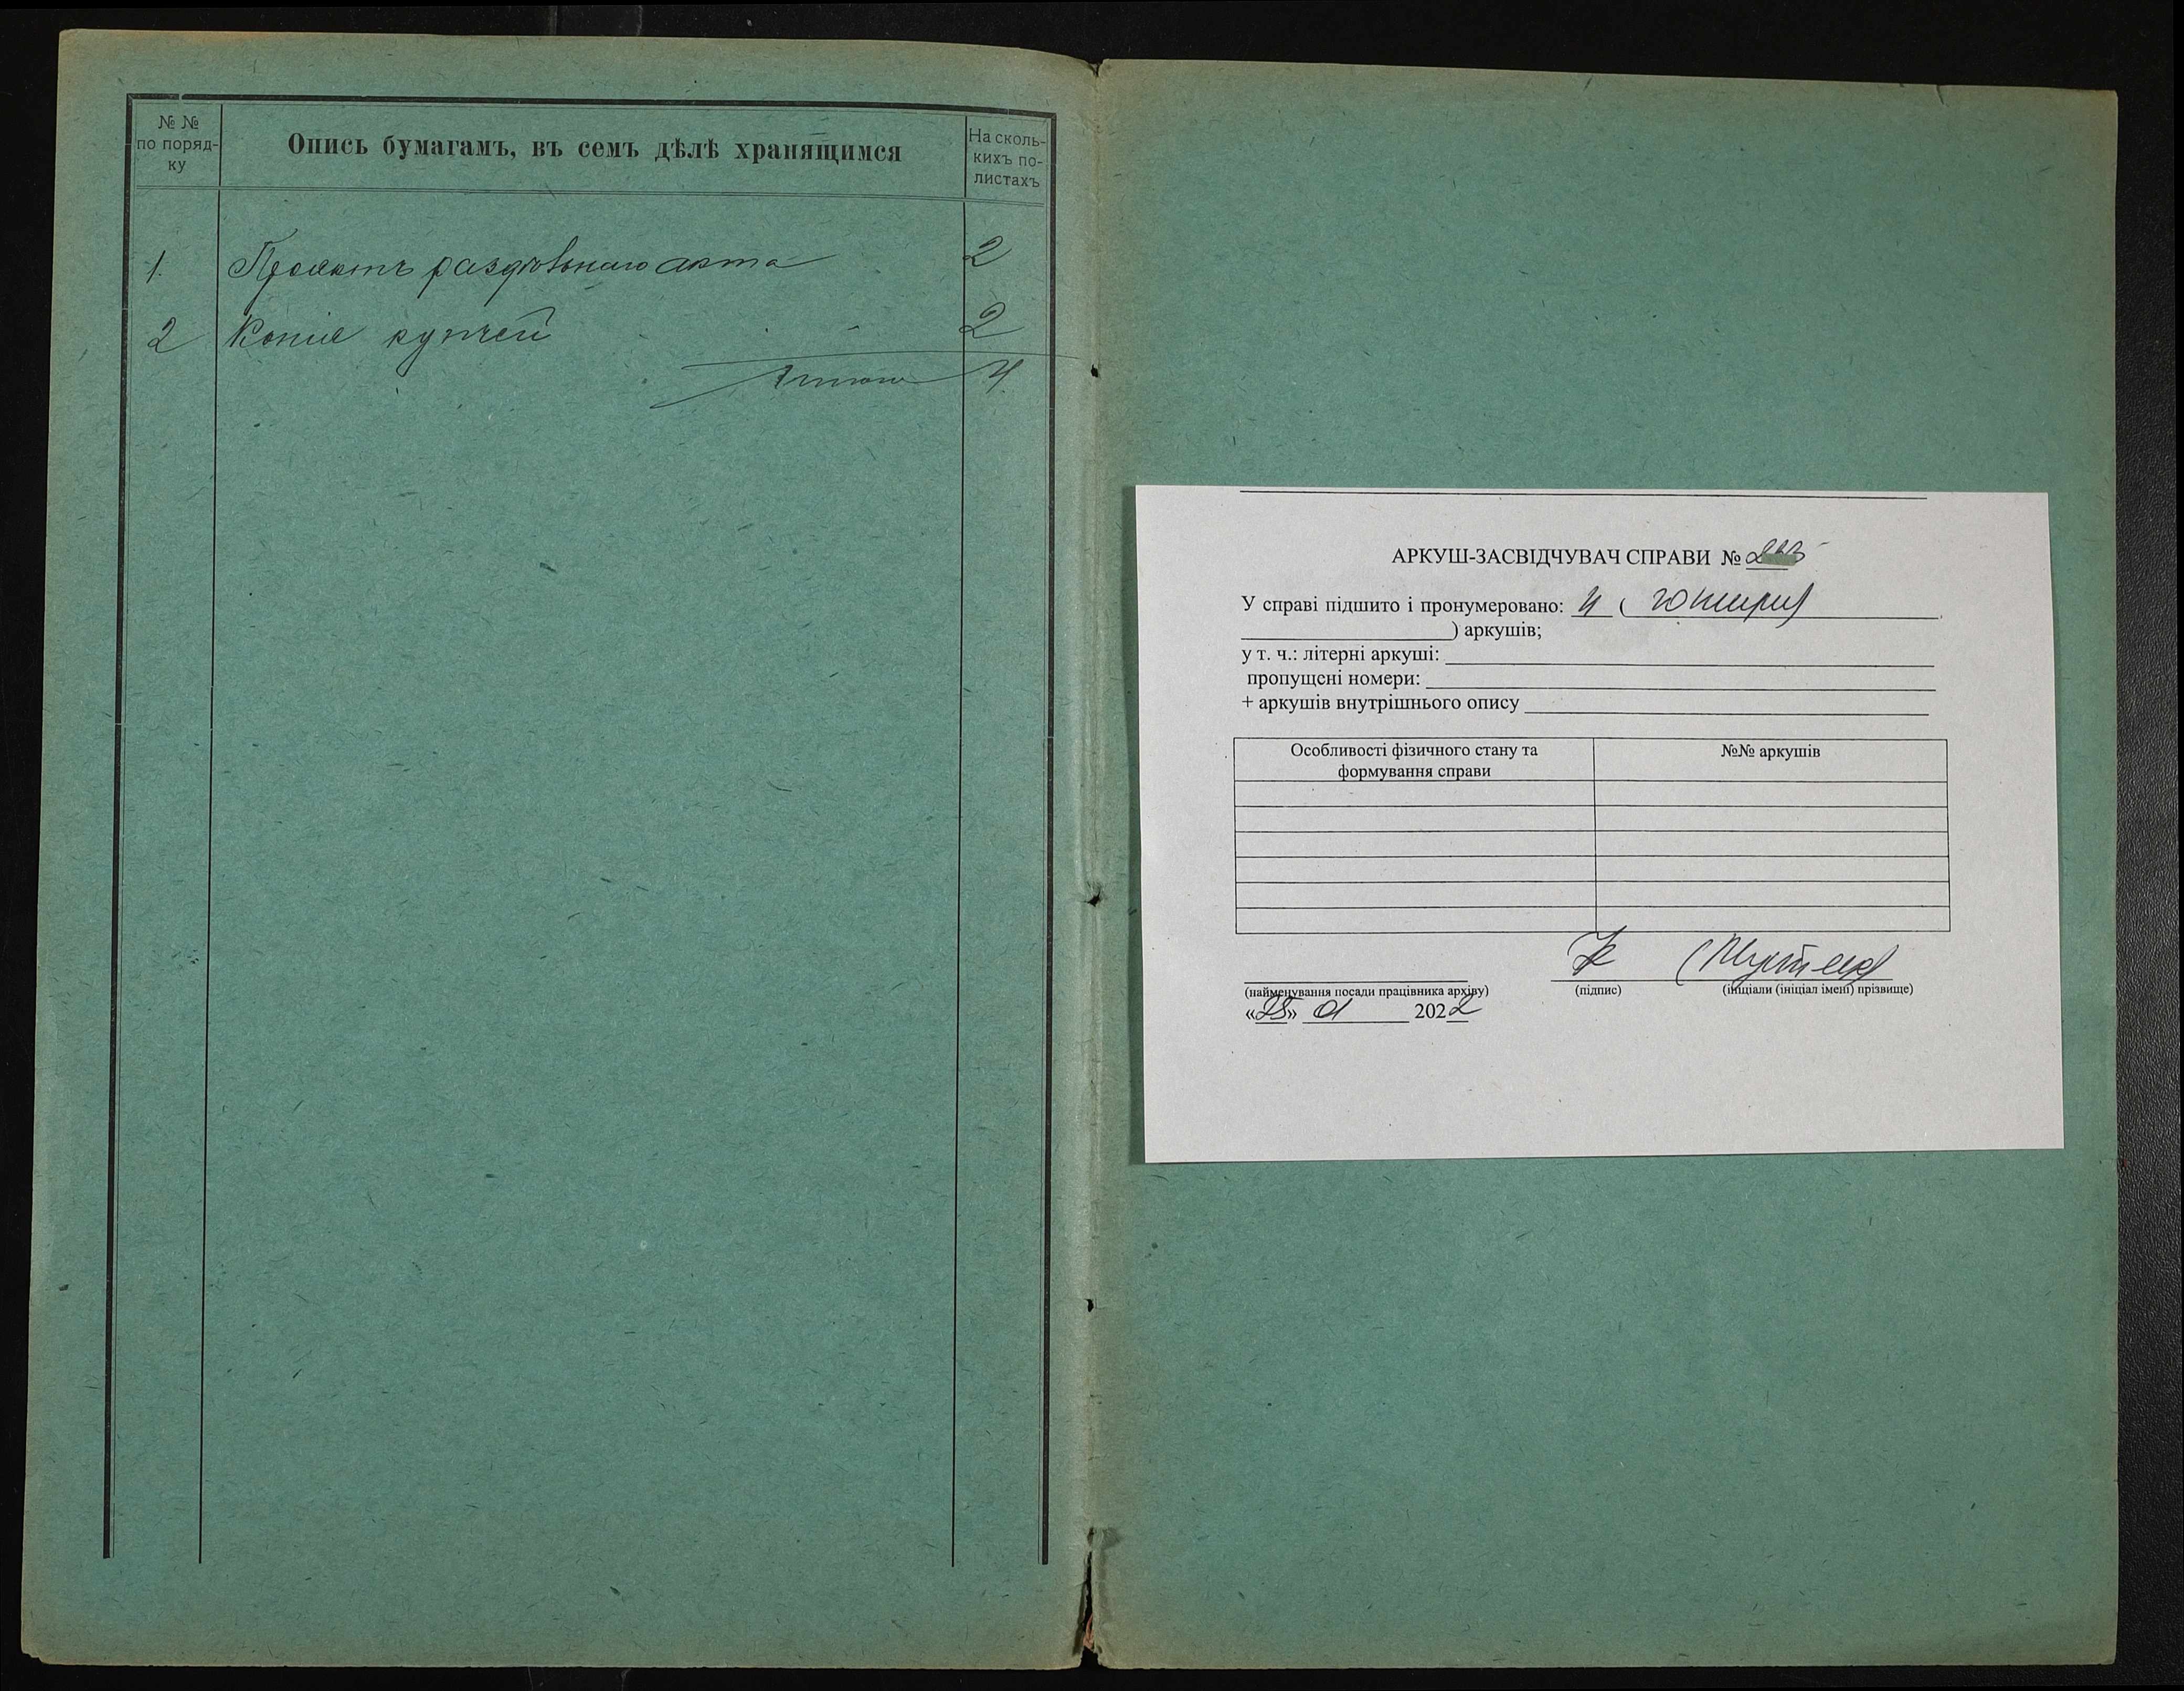 № №
по поряд-
ку
Опись бумагамъ, въ семъ дѣлѣ хранящимся
На сколь-
кихъ по-
листахъ
1. Проектъ раздѣльнаго акта 2
2 Копія купчей 2
4.
АРКУШ-ЗАСВІДЧУВАЧ СПРАВИ №
У справі підшито і пронумеровано: 4 ( чотири
) аркушів;
у т. ч.: літерні аркуші:
пропущені номери:
+ аркушів внутрішнього опису
Особливості фізичного стану та
формування справи
№№ аркушів
(найменування посади працівника архіву) (підпис) (ініціали (ініціал імені) прізвище)
«25» 01 2022